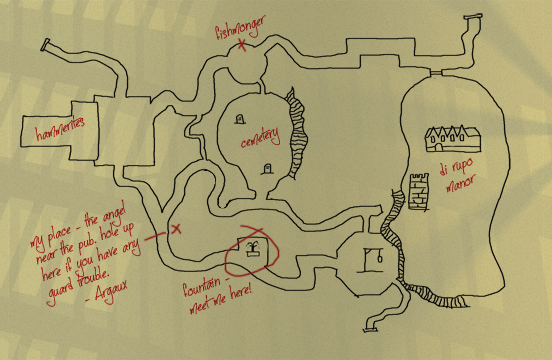 fishmonger
hammerites
cemetery
di rupo
manor
my place - the angel
near the pub. hole up
here if you have any
guard trouble.
- Argaux
fountain -
meet me here!